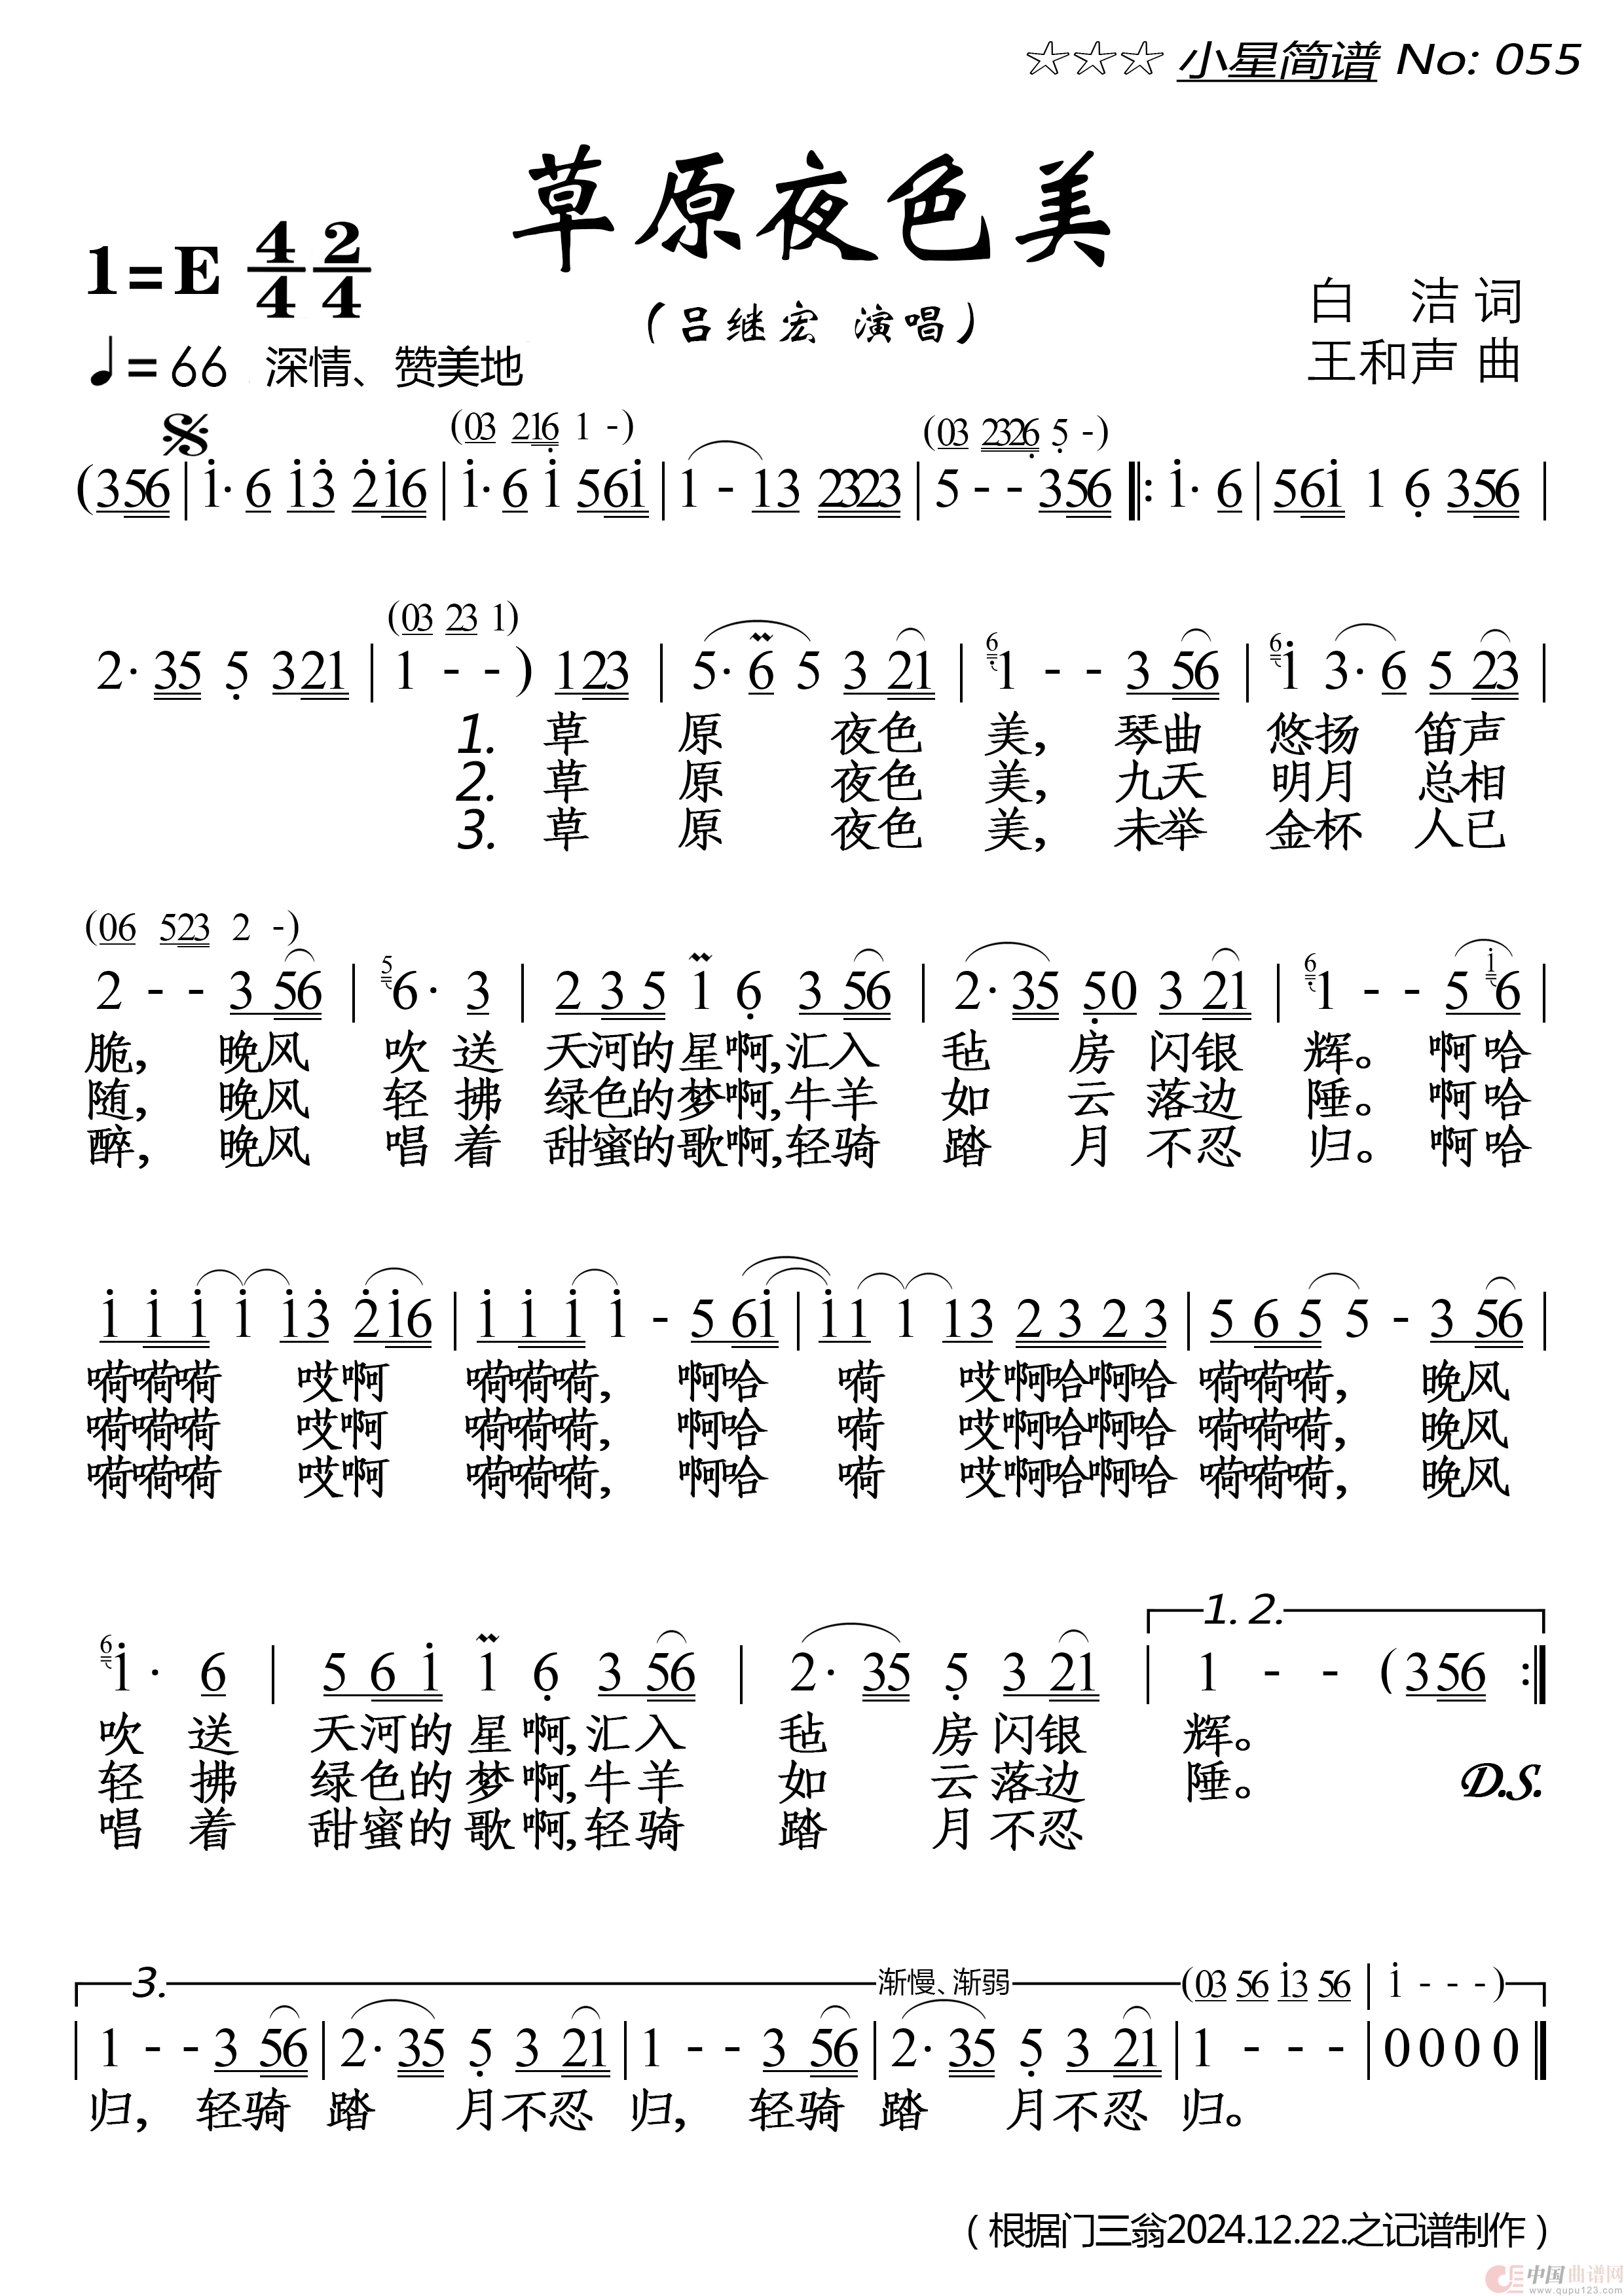 ☆☆☆ 小星简谱 No: 055
草原夜色美
1=E 4/4 2/4
(吕继宏 演唱)
白 洁 词
♩=66 深情、赞美地
王和声 曲
(03 216 1 -) (03 2326 5 -)
(356 | i· 6 i3 2i6 | i· 6 i 56i | 1 - 13 2323 | 5 - - 356 ‖: i· 6 | 56i 1 6 356 |
(03 23 1)
2· 35 5 321 | 1 - - ) 123 | 5· 6 5 3 21 | 6 1 - - 3 56 | 6 i 3· 6 5 23 |
1. 草 原 夜色 美, 琴曲 悠扬 笛声
2. 草 原 夜色 美, 九天 明月 总相
3. 草 原 夜色 美, 未举 金杯 人已
(06 523 2 -)
2 - - 3 56 | 5 6· 3 | 2 3 5 1 6 3 56 | 2· 35 50 3 21 | 6 1 - - 5 i 6 |
脆, 晚风 吹 送 天河的星啊,汇入 毡 房 闪银 辉。 啊哈
随, 晚风 轻 拂 绿色的梦啊,牛羊 如 云 落边 陲。 啊哈
醉, 晚风 唱 着 甜蜜的歌啊,轻骑 踏 月 不忍 归。 啊哈
i i i i i3 2i6 | i i i i - 5 6i | i1 1 13 2 3 2 3 | 5 6 5 5 - 3 56 |
嗬嗬嗬 哎啊 嗬嗬嗬, 啊哈 嗬 哎啊哈啊哈 嗬嗬嗬, 晚风
嗬嗬嗬 哎啊 嗬嗬嗬, 啊哈 嗬 哎啊哈啊哈 嗬嗬嗬, 晚风
嗬嗬嗬 哎啊 嗬嗬嗬, 啊哈 嗬 哎啊哈啊哈 嗬嗬嗬, 晚风
1. 2.
6 i· 6 | 5 6 i 1 6 3 56 | 2· 35 5 3 21 | 1 - - (356 :‖
吹 送 天河的 星 啊,汇入 毡 房 闪银 辉。
轻 拂 绿色的 梦 啊,牛羊 如 云 落边 陲。 D.S.
唱 着 甜蜜的 歌 啊,轻骑 踏 月 不忍
3. 渐慢、渐弱 (03 56 i3 56 | i - - -)
| 1 - - 3 56 | 2· 35 5 3 21 | 1 - - 3 56 | 2· 35 5 3 21 | 1 - - - | 0 0 0 0 ‖
归, 轻骑 踏 月不忍 归, 轻骑 踏 月不忍 归。
(根据门三翁2024.12.22.之记谱制作)
中国曲谱网
www.qupu123.com